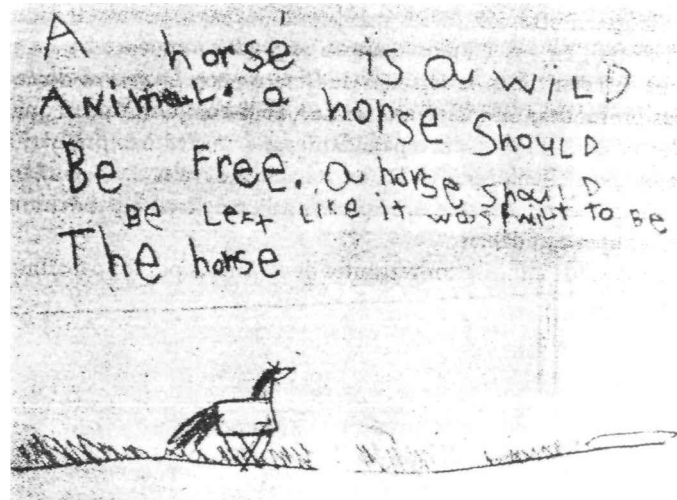 A horse is a WiLD
ANimaL. a horse ShouLD
Be Free. a horse ShouLD
Be LeFt Like it was MeNt To Be
The horse